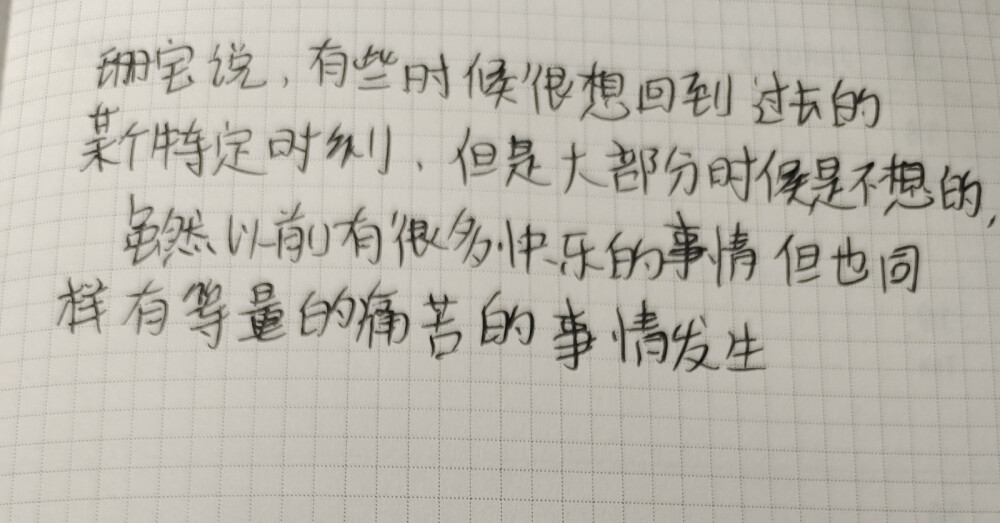 珊宝说，有些时候很想回到过去的
某个特定时刻，但是大部分时候是不想的，
虽然以前有很多快乐的事情但也同
样有等量的痛苦的事情发生